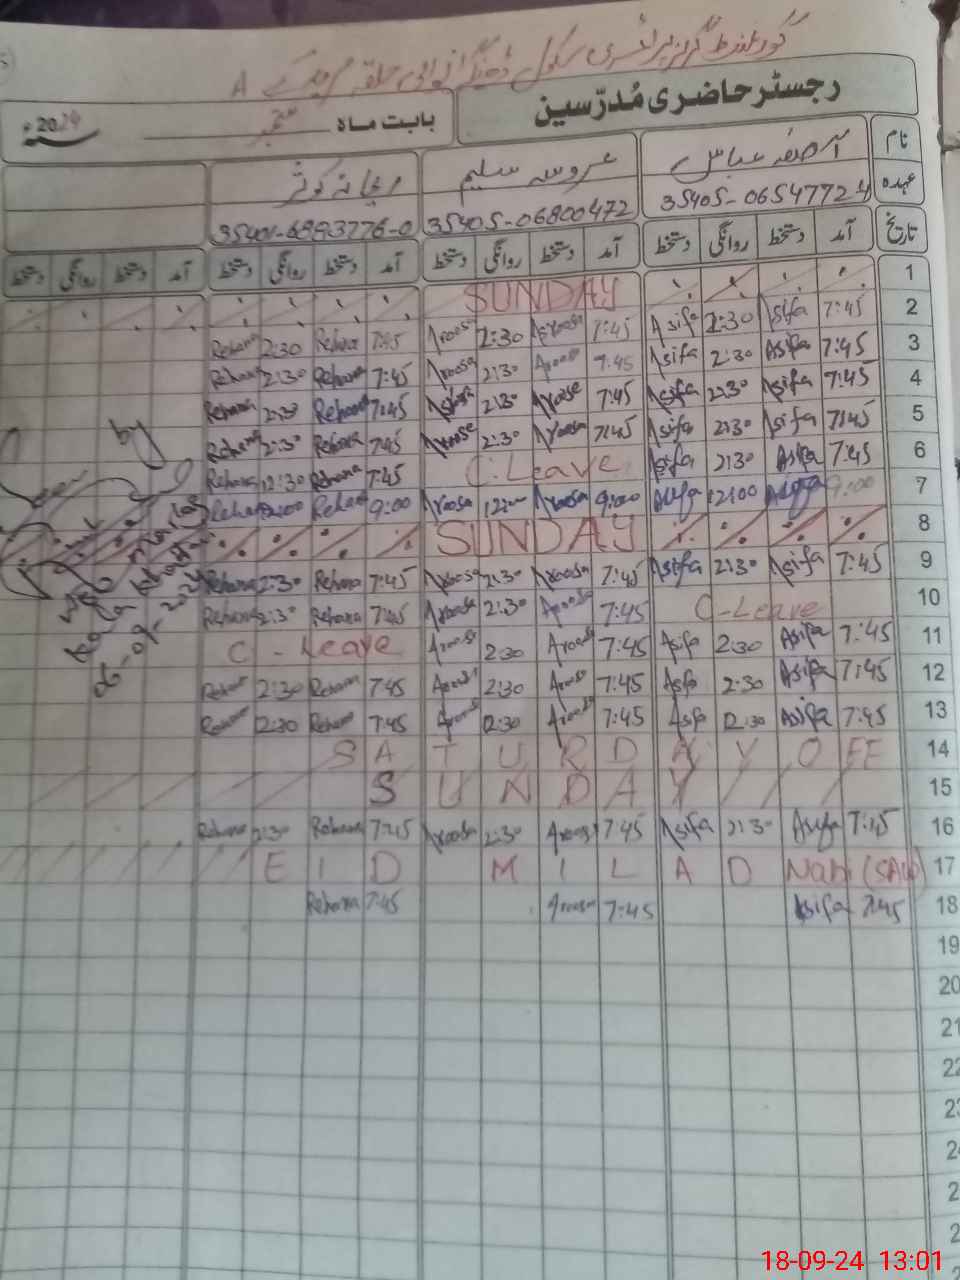 گورنمنٹ گرلز پرائمری سکول
A
رجسٹر حاضری مُدرّسین
بابت ماہ ستمبر 2024ء
نام آصفہ عباس عروسہ سلیم ریحانہ کوثر
عہدہ 35405-0654772-4 35405-06800472 35401-6993776-0
تاریخ آمد دستخط روانگی دستخط آمد دستخط روانگی دستخط آمد دستخط روانگی دستخط آمد دستخط روانگی دستخط
SUNDAY 1
Rehana 2:30 Rehana 7:45 Aroosa 2:30 Aroosa 7:45 Asifa 2:30 Asifa 7:45 2
Rehana 2:30 Rehana 7:45 Aroosa 2:30 Aroosa 7:45 Asifa 2:30 Asifa 7:45 3
Rehana 2:30 Rehana 7:45 Aroosa 2:30 Aroosa 7:45 Asifa 2:30 Asifa 7:45 4
Rehana 2:30 Rehana 7:45 Aroosa 2:30 Aroosa 7:45 Asifa 2:30 Asifa 7:45 5
Rehana 2:30 Rehana 7:45 C.Leave Asifa 2:30 Asifa 7:45 6
Rehana 12:00 Rehana 9:00 Aroosa 12:00 Aroosa 9:00 Asifa 12:00 Asifa 9:00 7
SUNDAY 8
Rehana 2:30 Rehana 7:45 Aroosa 2:30 Aroosa 7:45 Asifa 2:30 Asifa 7:45 9
Rehana 2:30 Rehana 7:45 Aroosa 2:30 Aroosa 7:45 C-Leave 10
C-Leave Aroosa 2:30 Aroosa 7:45 Asifa 2:30 Asifa 7:45 11
Rehana 2:30 Rehana 7:45 Aroosa 2:30 Aroosa 7:45 Asifa 2:30 Asifa 7:45 12
Rehana 2:30 Rehana 7:45 Aroosa 2:30 Aroosa 7:45 Asifa 2:30 Asifa 7:45 13
SATURDAY OFF 14
SUNDAY 15
Rehana 2:30 Rehana 7:45 Aroosa 2:30 Aroosa 7:45 Asifa 2:30 Asifa 7:45 16
EID MILAD Nabi (SAW) 17
Rehana 7:45 Aroosa 7:45 Asifa 7:45 18
19
20
21
22
23
24
by
18-09-24 13:01